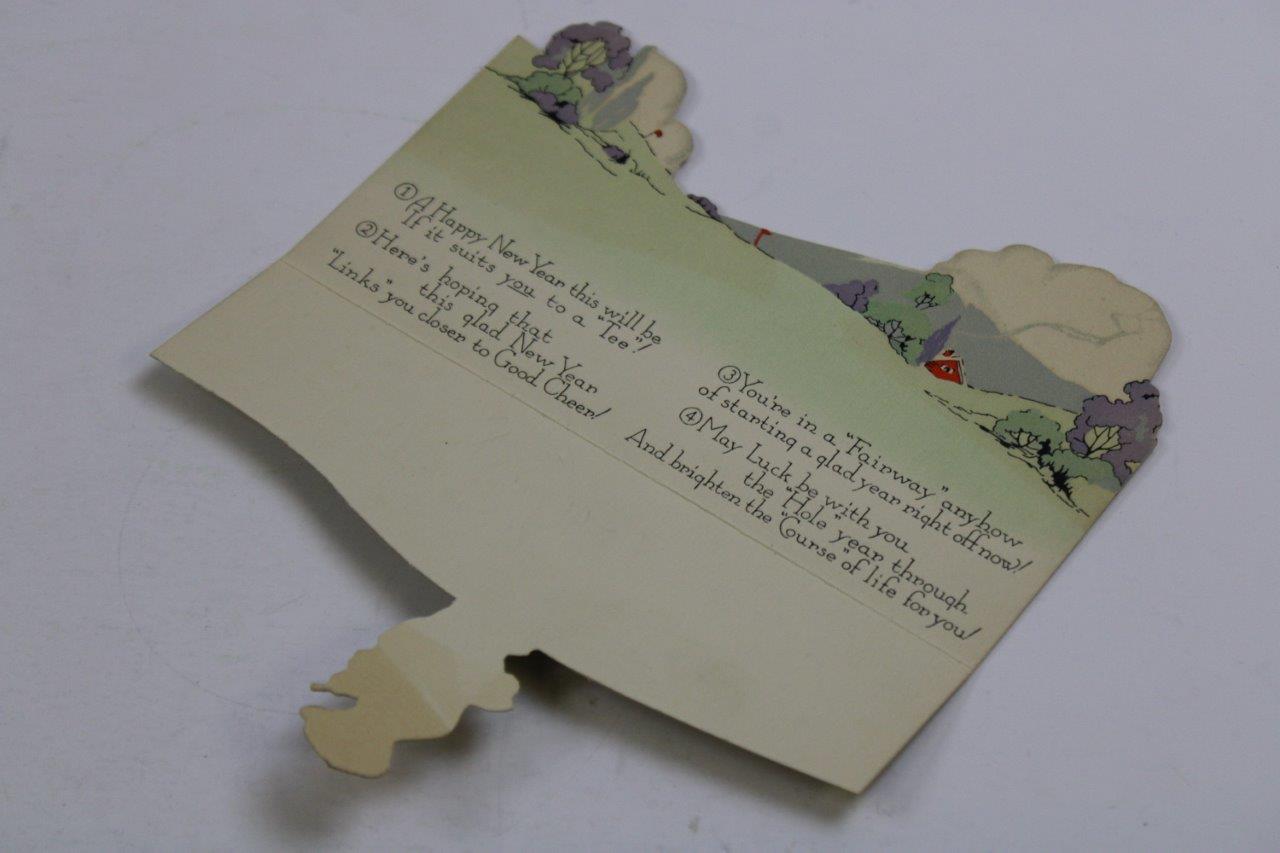 ① A Happy New Year this will be
If it suits you to a "Tee"!
② Here's hoping that
this glad New Year
"Links" you closer to Good Cheer!
③ You're in a "Fairway" anyhow
of starting a glad year right off now!
④ May Luck be with you
the "Hole" year through
And brighten the "Course" of life for you!